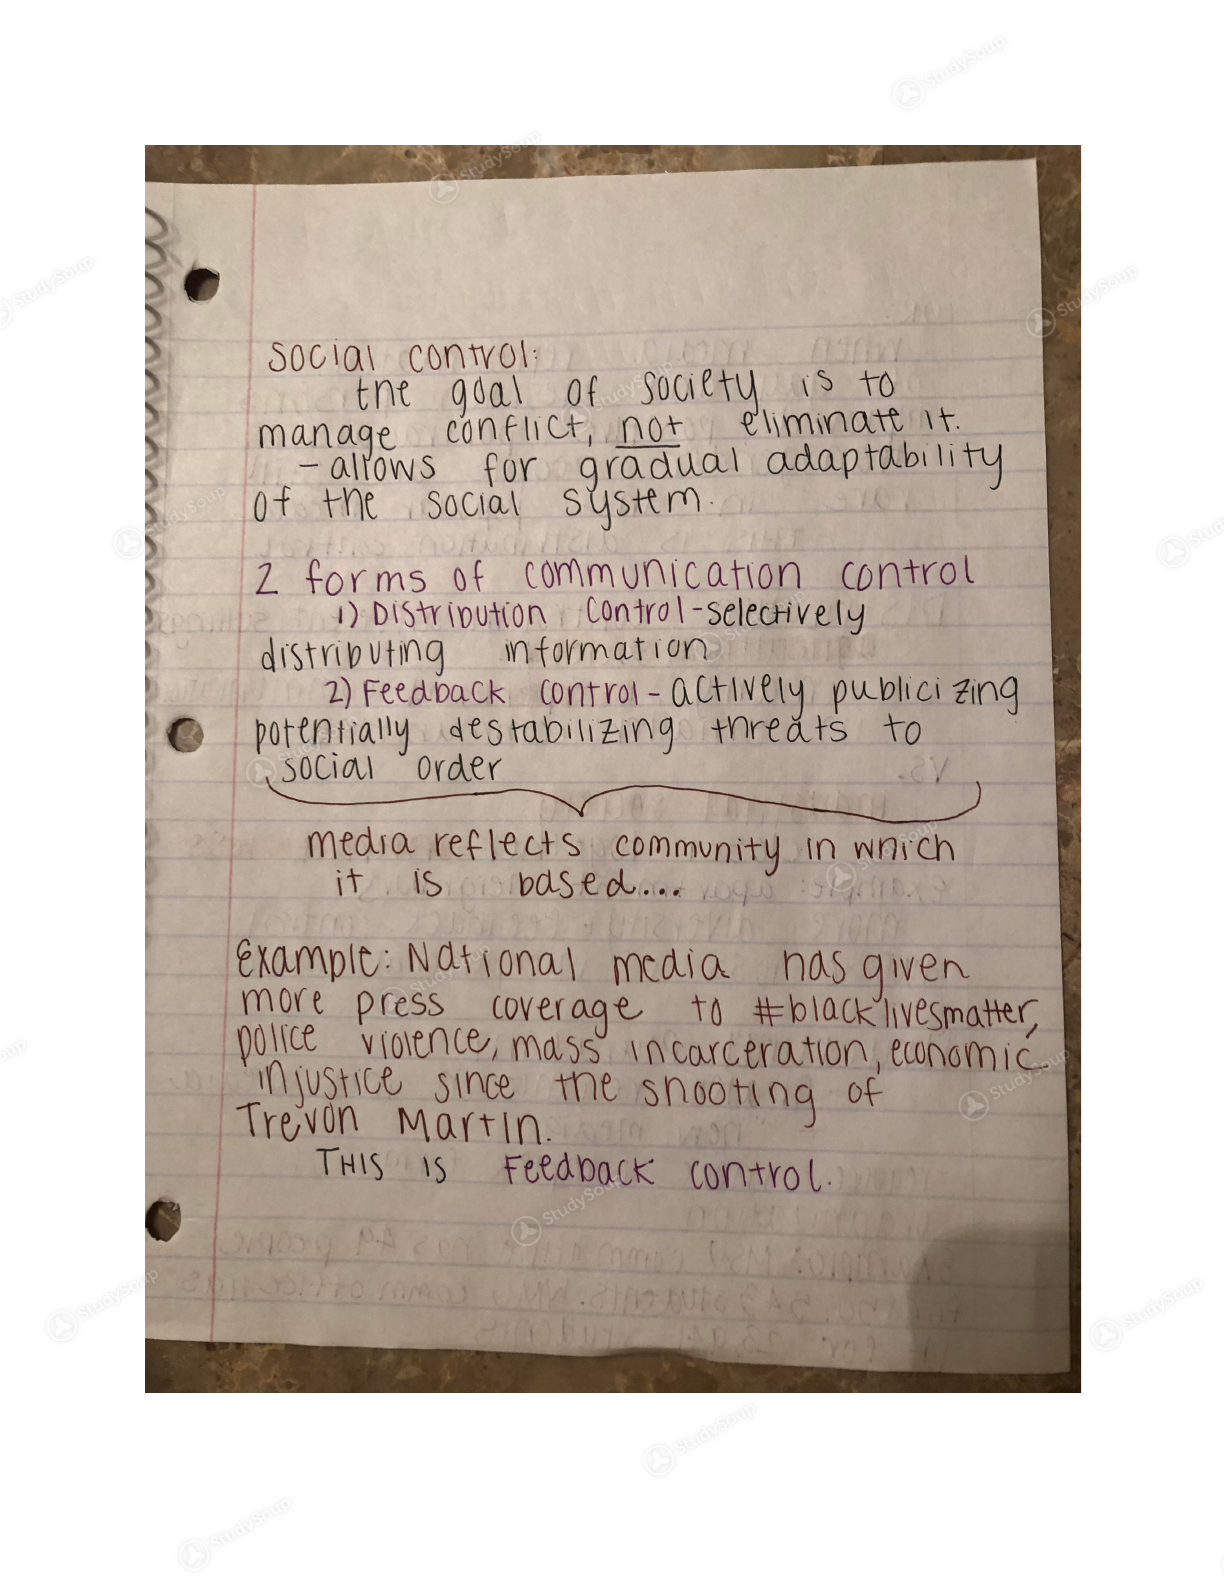 social control:
the goal of society is to
manage conflict, not eliminate it.
- allows for gradual adaptability
of the social system.
2 forms of communication control
1) Distribution control - selectively
distributing information
2) Feedback control - actively publicizing
potentially destabilizing threats to
social order
media reflects community in which
it is based...
Example: National media has given
more press coverage to #blacklivesmatter,
police violence, mass incarceration, economic
injustice since the shooting of
Trevon Martin.
THIS IS Feedback control.
StudySoup